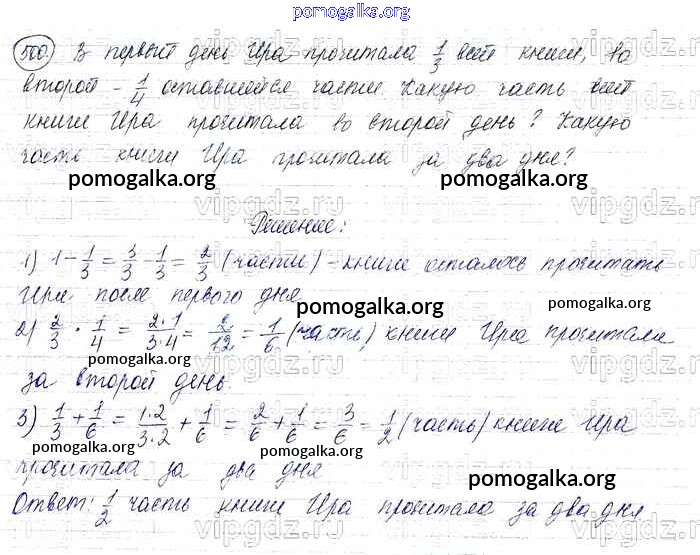 pomogalka.org
500) В первый день Ира прочитала 1/3 всей книги, во
второй - 1/4 оставшейся части. Какую часть всей
книги Ира прочитала во второй день? Какую
часть книги Ира прочитала за два дня?
pomogalka.org pomogalka.org
vipgdz.ru vipgdz.ru vipgdz.ru
Решение:
1) 1 - 1/3 = 3/3 - 1/3 = 2/3 (части) - книги осталось прочитать
Ире после первого дня
pomogalka.org pomogalka.org
2) 2/3 · 1/4 = 2·1/3·4 = 2/12 = 1/6 (часть) книги Ира прочитала
за второй день.
3) 1/3 + 1/6 = 1·2/3·2 + 1/6 = 2/6 + 1/6 = 3/6 = 1/2 (часть) книги Ира
pomogalka.org pomogalka.org
прочитала за два дня
pomogalka.org
Ответ: 1/2 часть книги Ира прочитала за два дня
vipgdz.ru vipgdz.ru vipgdz.ru
pomogalka.org